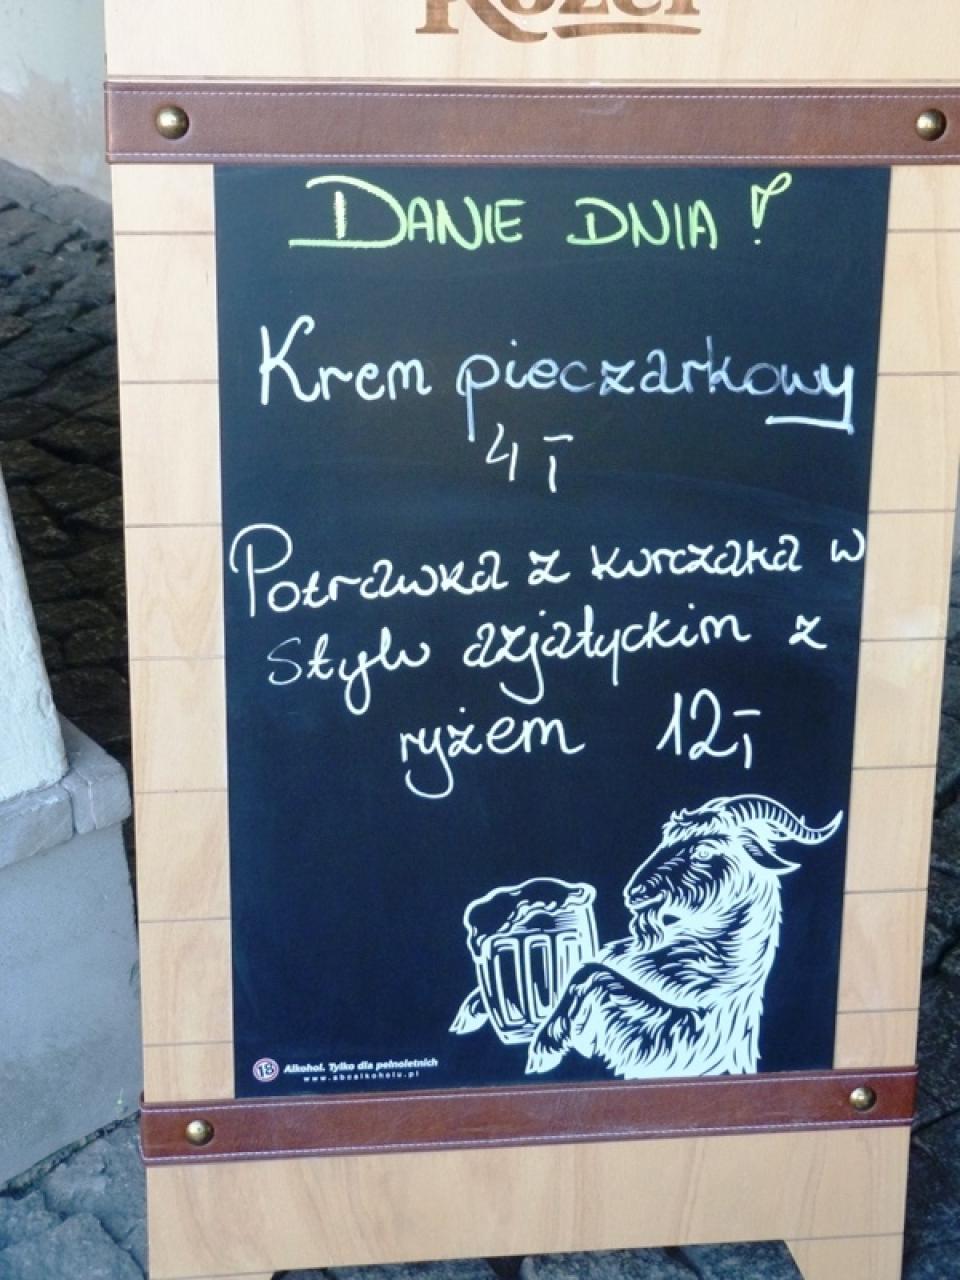 Kozel
DANIE DNIA!
Krem pieczarkowy
4,-
Potrawka z kurczaka w
stylu azjatyckim z
ryżem 12,-
18 Alkohol. Tylko dla pełnoletnich
www.abcalkoholu.pl